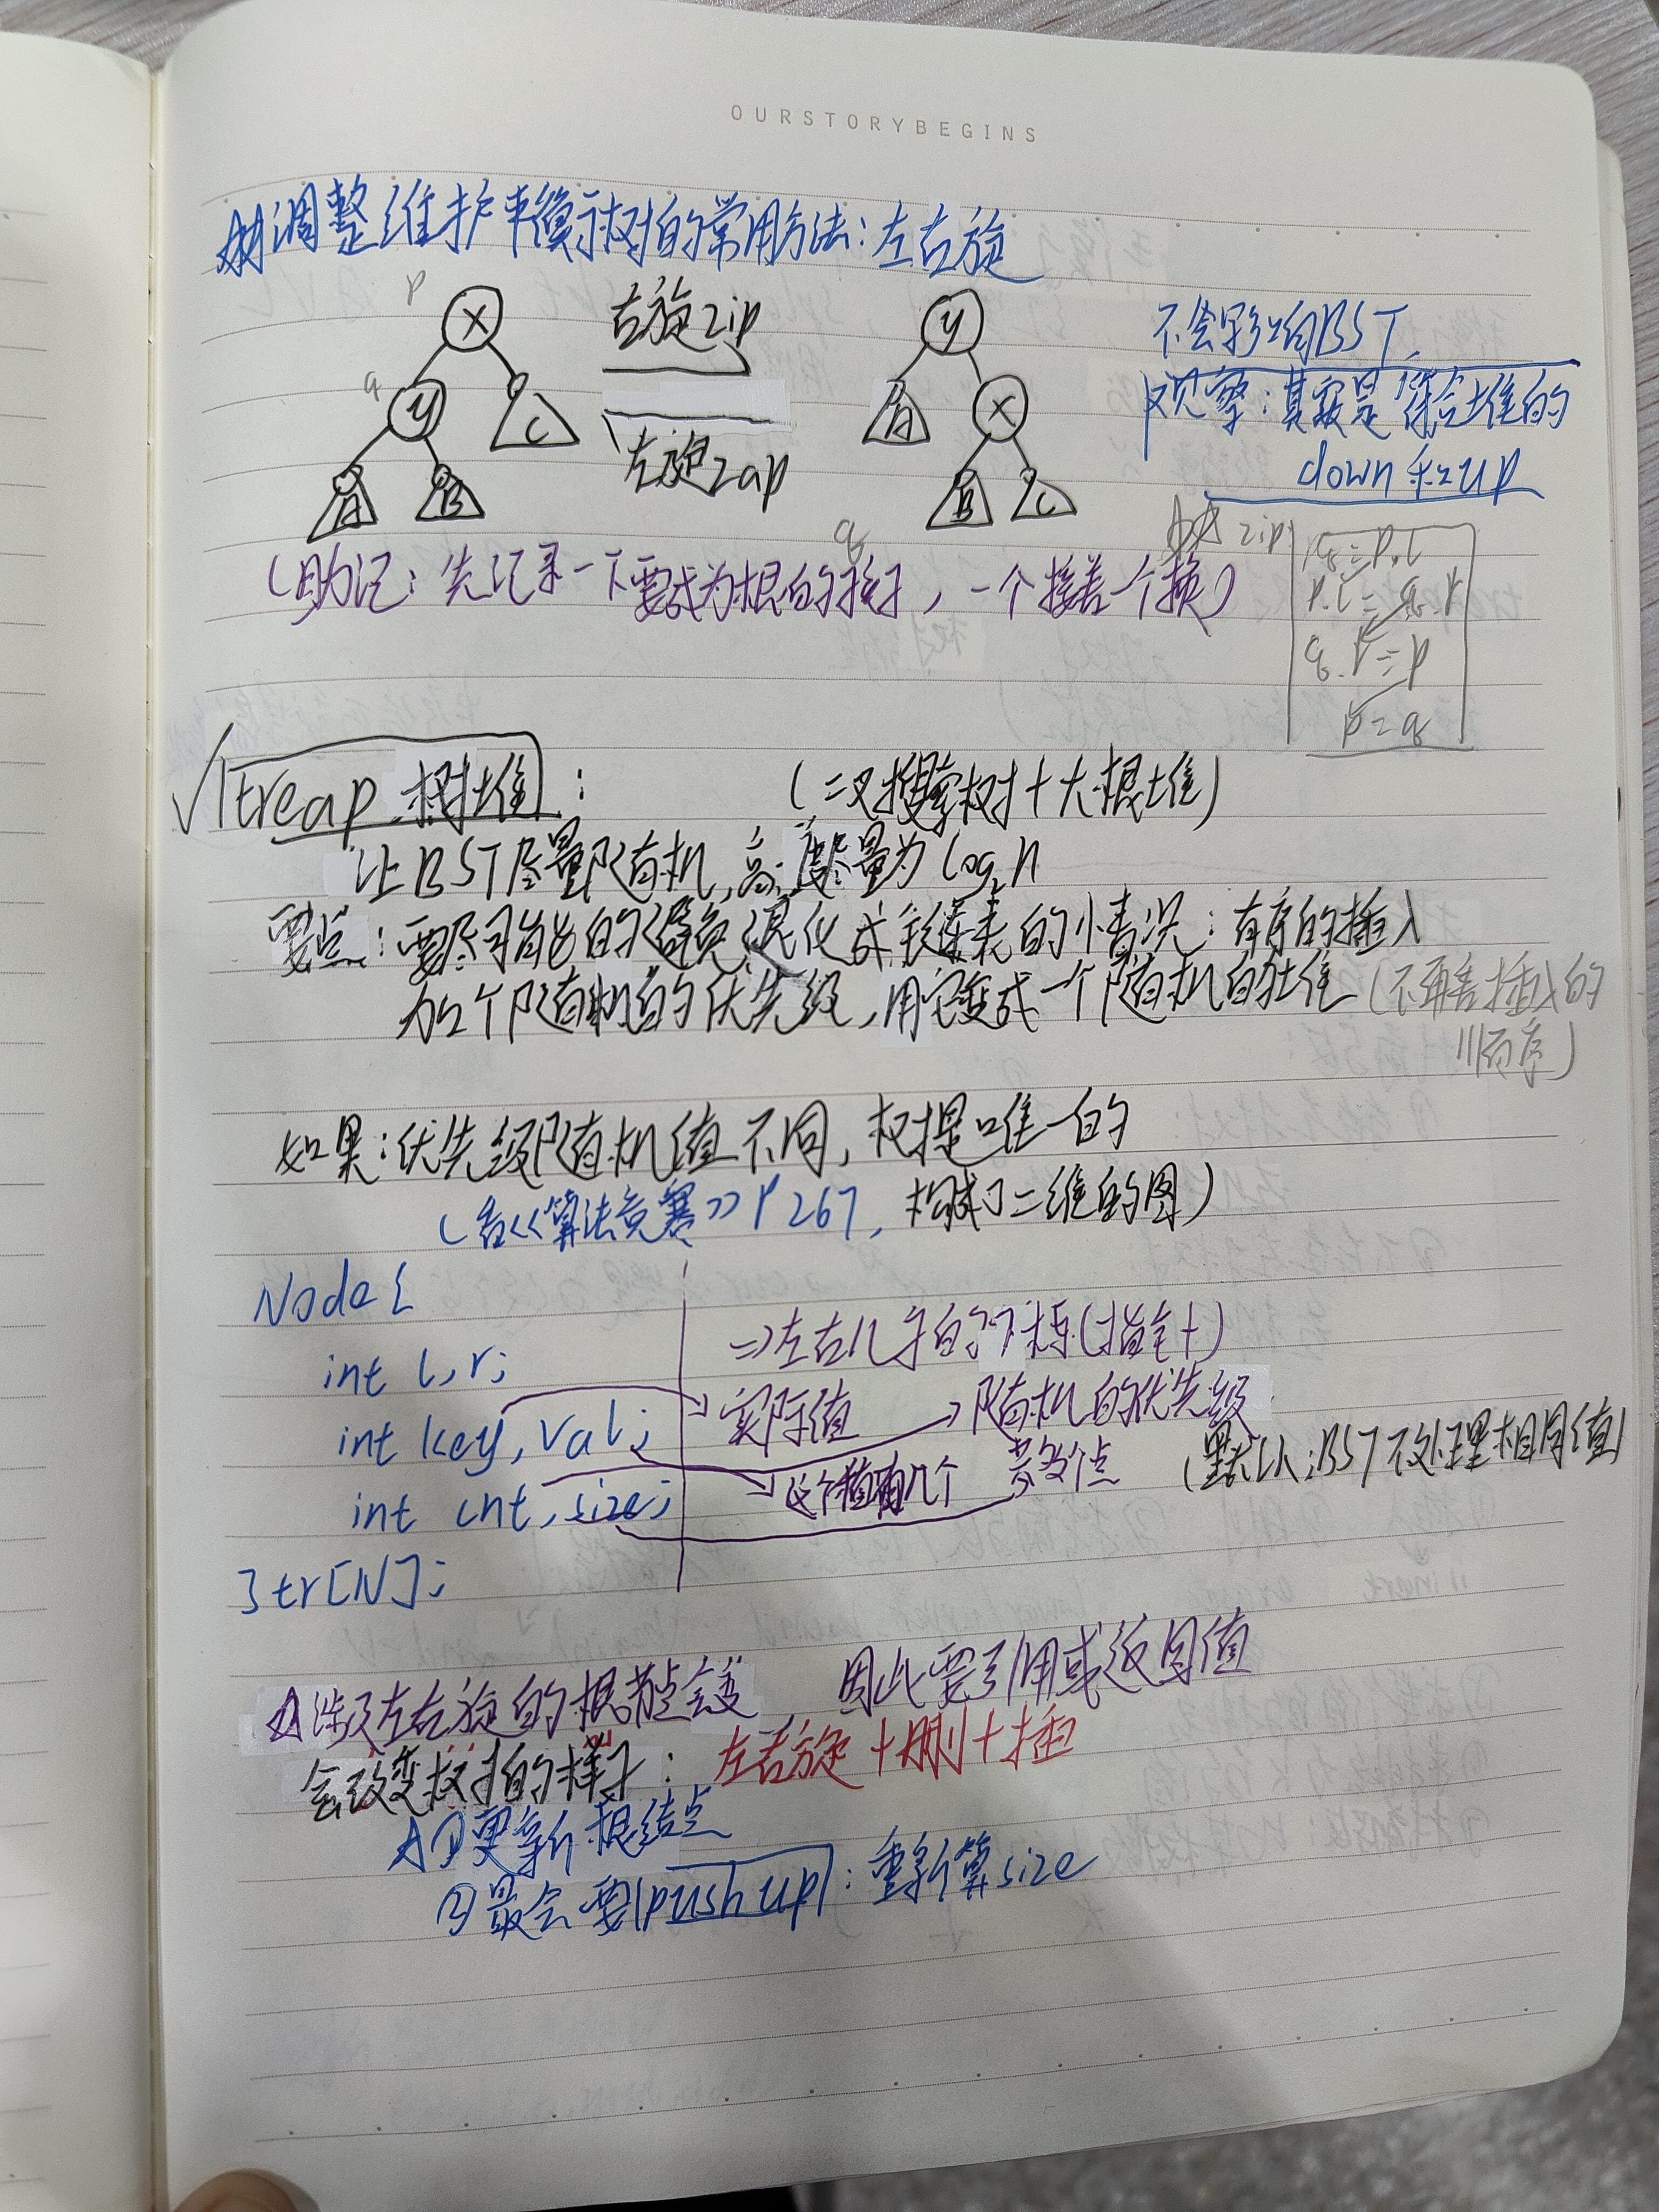 OURSTORYBEGINS
调整维护平衡树的常用方法：左右旋
p
X
右旋zip
y
不会影响BST
q
y
C
A
X
观察：其实是符合堆的
左旋zap
down和up
A
B
B
C
q
zip
q=p.l
(助记：先记录一下要成为根的孩子，一个接着一个换)
p.l=q.r
q.r=p
p=q
treap 树堆：
(二叉搜索树+大根堆)
让BST尽量随机，高度尽量为log₂n
要点：要尽可能的避免退化成链表的小情况：有序的插入
加2个随机的优先级，用它变成一个随机的堆(不再害插入的
顺序)
如果：优先级随机值不同，树是唯一的
(看<<算法竞赛>>P267，构成了二维的图)
Node{
int l,r;
=>左右儿子的下标(指针)
int key,val;
实际值
随机的优先级
int cnt,size;
这个值有几个
(默认：BST不处理相同值)
}tr[N];
涉及左右旋的根节点会变
因此要引用或返回值
会改变树的样子：左右旋+删+插
①更新根结点
②最会要pushup：重新算size